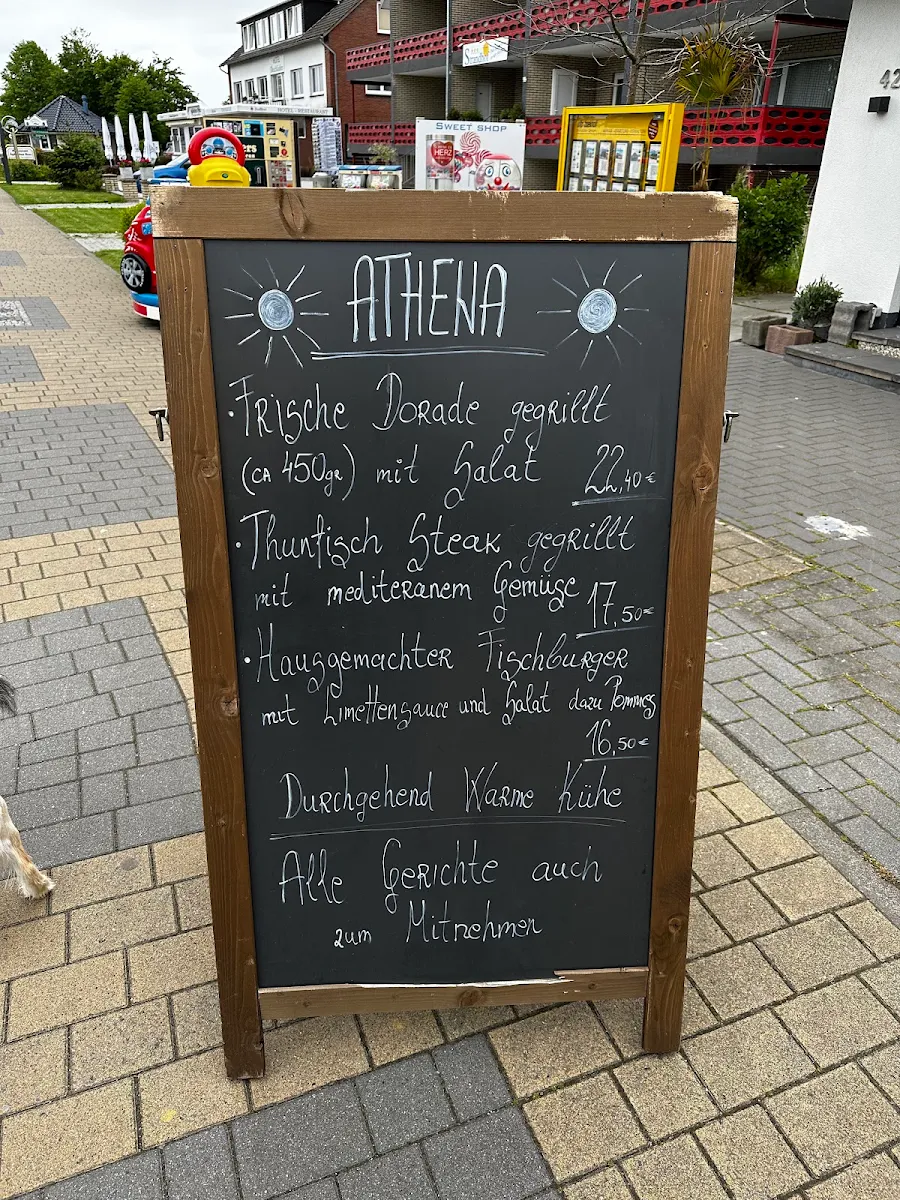 SWEET SHOP
HERZ
42
ATHENA
• Frische Dorade gegrillt
(ca 450gr) mit Salat 22,40 €
• Thunfisch Steak gegrillt
mit mediteranem Gemüse 17,50 €
• Hausgemachter Fischburger
mit Limettensauce und Salat dazu Pommes
16,50 €
Durchgehend Warme Kühe
Alle Gerichte auch
zum Mitnehmen